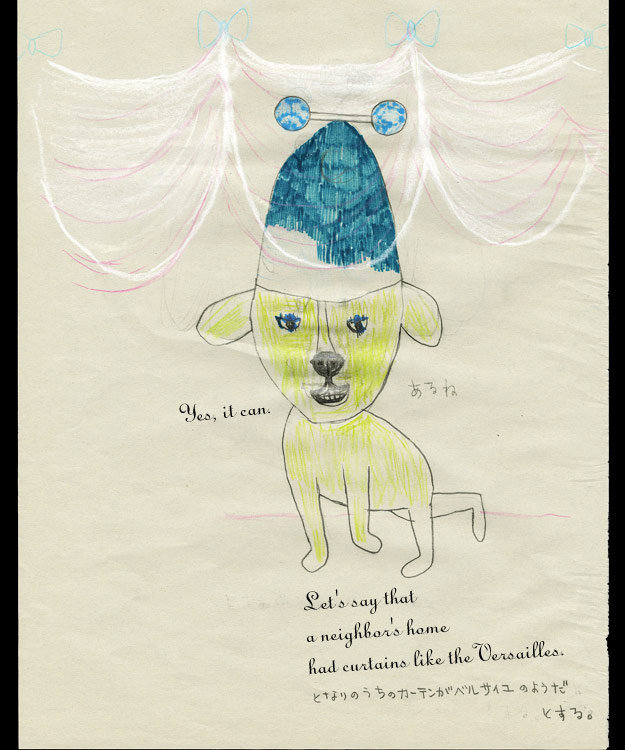 あるね
Yes, it can.
Let's say that
a neighbor's home
had curtains like the Versailles.
となりのうちのカーテンがベルサイユのようだ
とする。